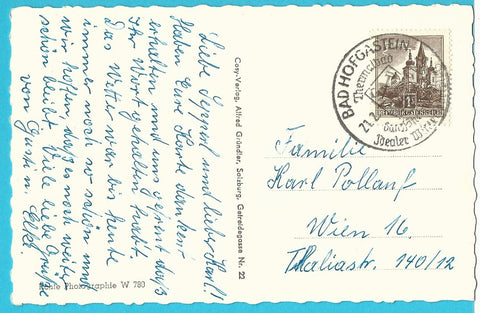 Liebe Seppal und lieber Karl!
Haben Eure Karte dankend
erhalten und uns gefreut, daß
Ihr Wort gehalten habt.
Das Wetter war bis heute
immer noch so schön und
wir hoffen, daß es noch weiter
schön bleibt. Viele liebe Grüße
von Gustin. Elke.
Echte Photographie W 780
Cosy-Verlag, Alfred Gründler, Salzburg, Getreidegasse Nr. 22
BAD HOFGASTEIN
Thermalbad
REPUBLIK ÖSTERREICH
Idealer
Familie
Karl Pollauf
Wien 16.
Thaliastr. 140/12